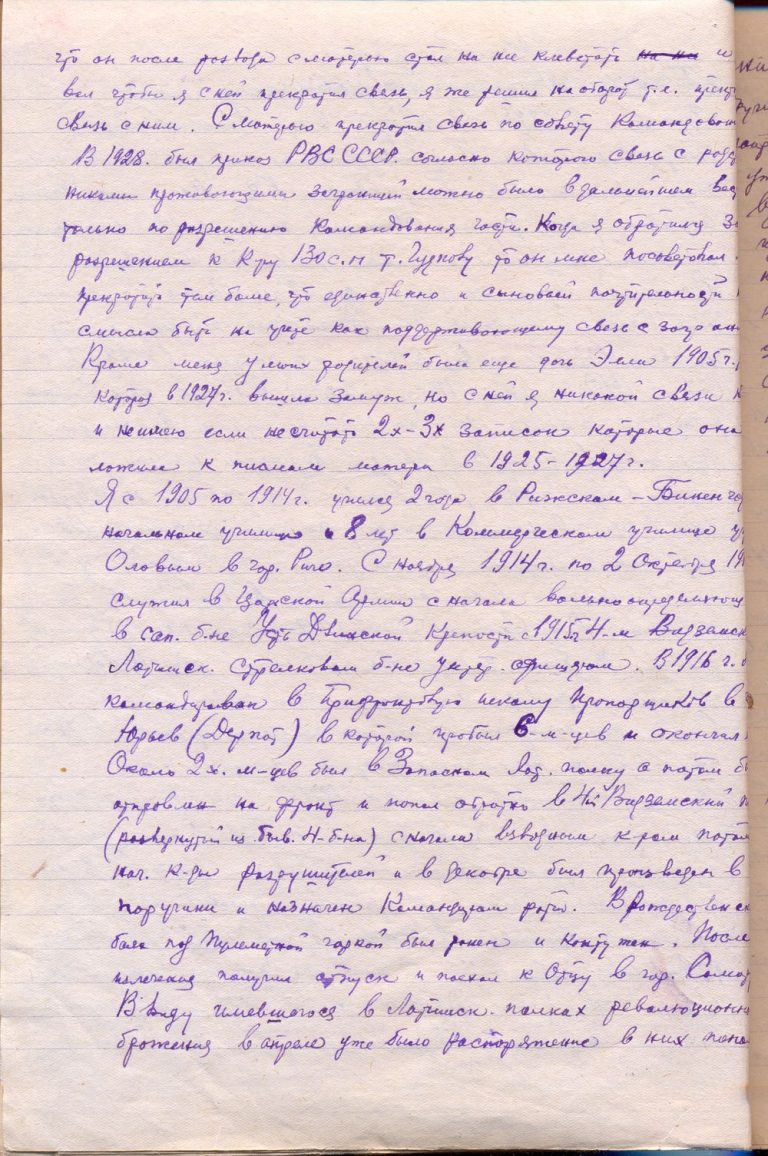 что он после развода с матерью стал на нее клеветать ~~на на~~ и
вал чтобы я с ней прекратил связь, я же решил на оборот т.е. прекр
связь с ним. С матерью прекратил связь по совету Командован
В 1928. был приказ РВС СССР. согласно которого связь с родс
никами проживающими заграницей можно было в дальнейшем вес
только по разрешению командования части. Когда я обратился за
разрешением к К-ру 130 с.п т. то он мне посоветовал
прекратить тем более, что единственно и сыновьей почтительности
смысла быть на учете как поддерживающему связь с загр
Кроме меня у моих родителей была еще дочь Элли 1905 г.
которая в 1927 г. вышла замуж, но с ней я никакой связи н
и не имею если не считать 2х-3х записок которые она
ложила к письмам матери в 1925-1927 г.
Я с 1905 по 1914 г. учился 2 года в Рижском-
начальном училище и 8 лет в Коммерческом училище
в гор. Риге. С Ноября 1914 г. по 2 Октября 19
служил в Царской Армии с начала вольноопределяющ
в сап. б-не Усть Двинской Крепости с 1915 г 4-м Видземск
Латышск. стрелковом б-не унтер. офицером. В 1916 г.
командирован в Прифронтовую школу прапорщиков в
Юрьев (Дерпт) в которой пробыл 6-м-цев и окончил
Около 2х. м-цев был в Запасном Лат. полку а потом б
отправлен на фронт и попал обратно в 4й Видземский п
(развернутый из быв. 4-б-на) с начала взводным к-ром потом
нач. к-ды разрушителей и в декабре был произведен в
поручики и назначен Командиром роты. В рождественск
боях под Пулеметной горкой был ранен и контужен. После
излечения получил отпуск и поехал к Отцу в год. Сама
В виду имевшегося в Латышск. полках революционн
брожения в апреле уже было распоряжение в них